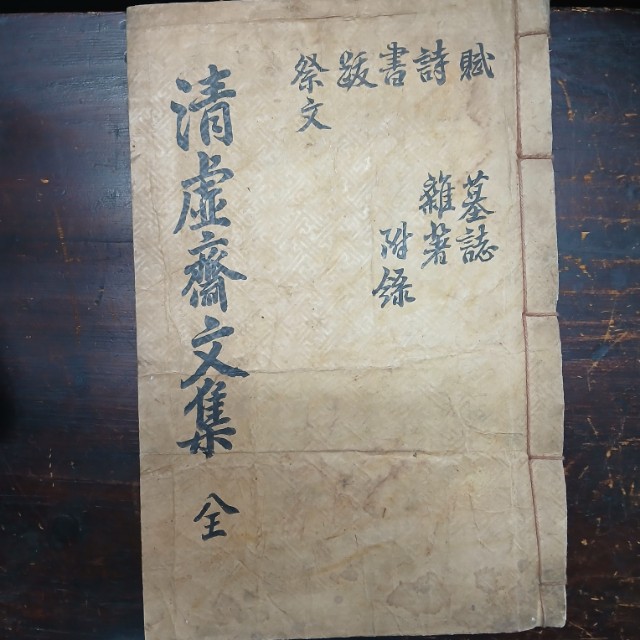 賦
詩
書
跋
祭文
墓誌
雜著
附錄
清虛齋文集 全